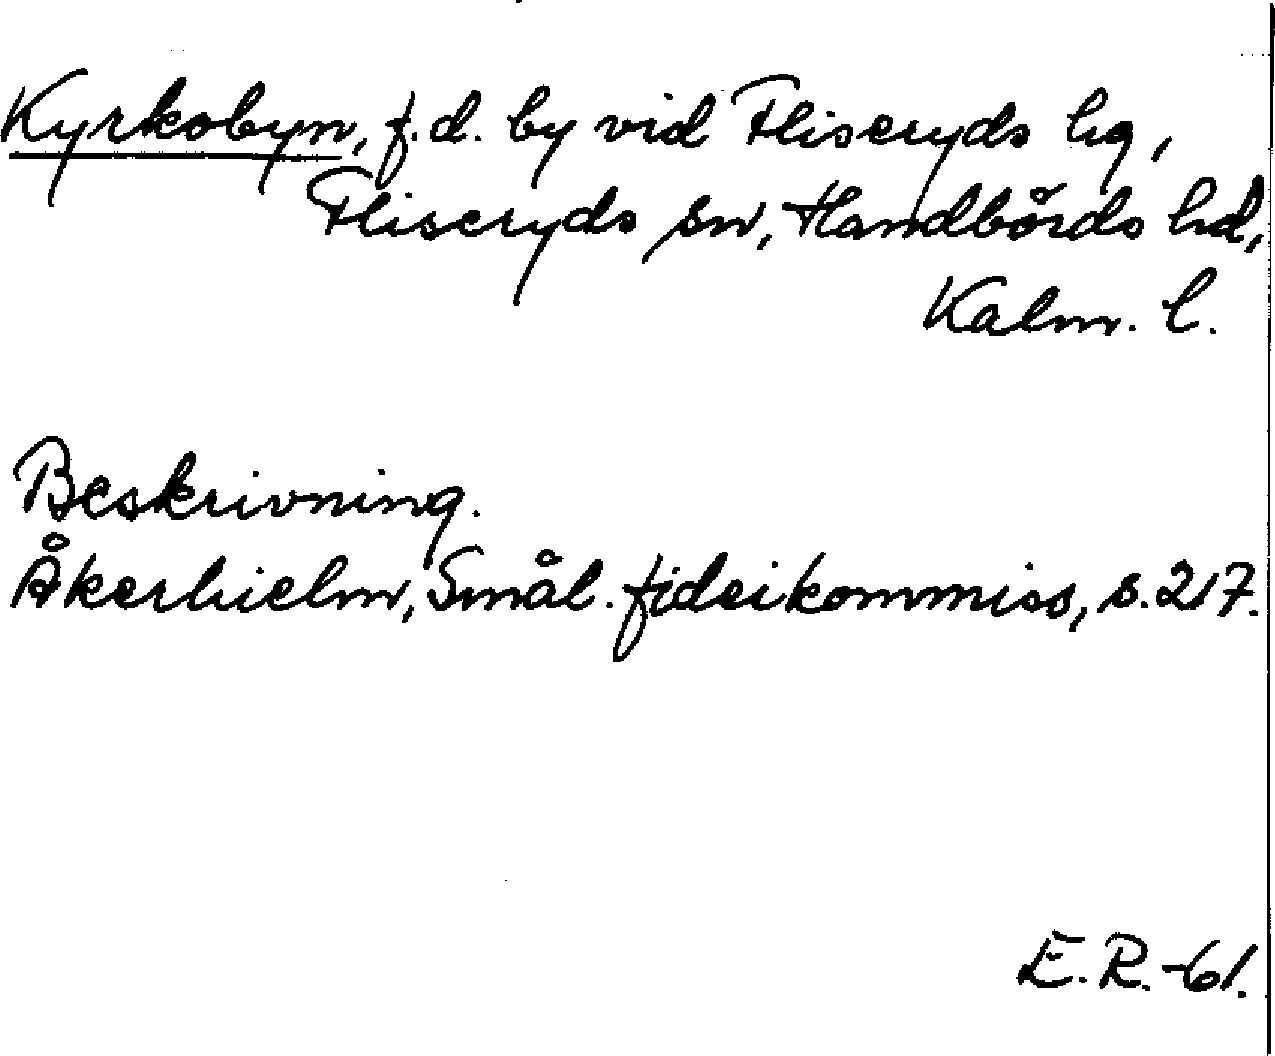 Kyrkobyn, f.d. by vid Fliseryds hg,
Fliseryds sn, Handbörds hd,
Kalm. l.
Beskrivning.
Åkerhielm, Smål. fideikommiss, s. 217.
E.R.-61.